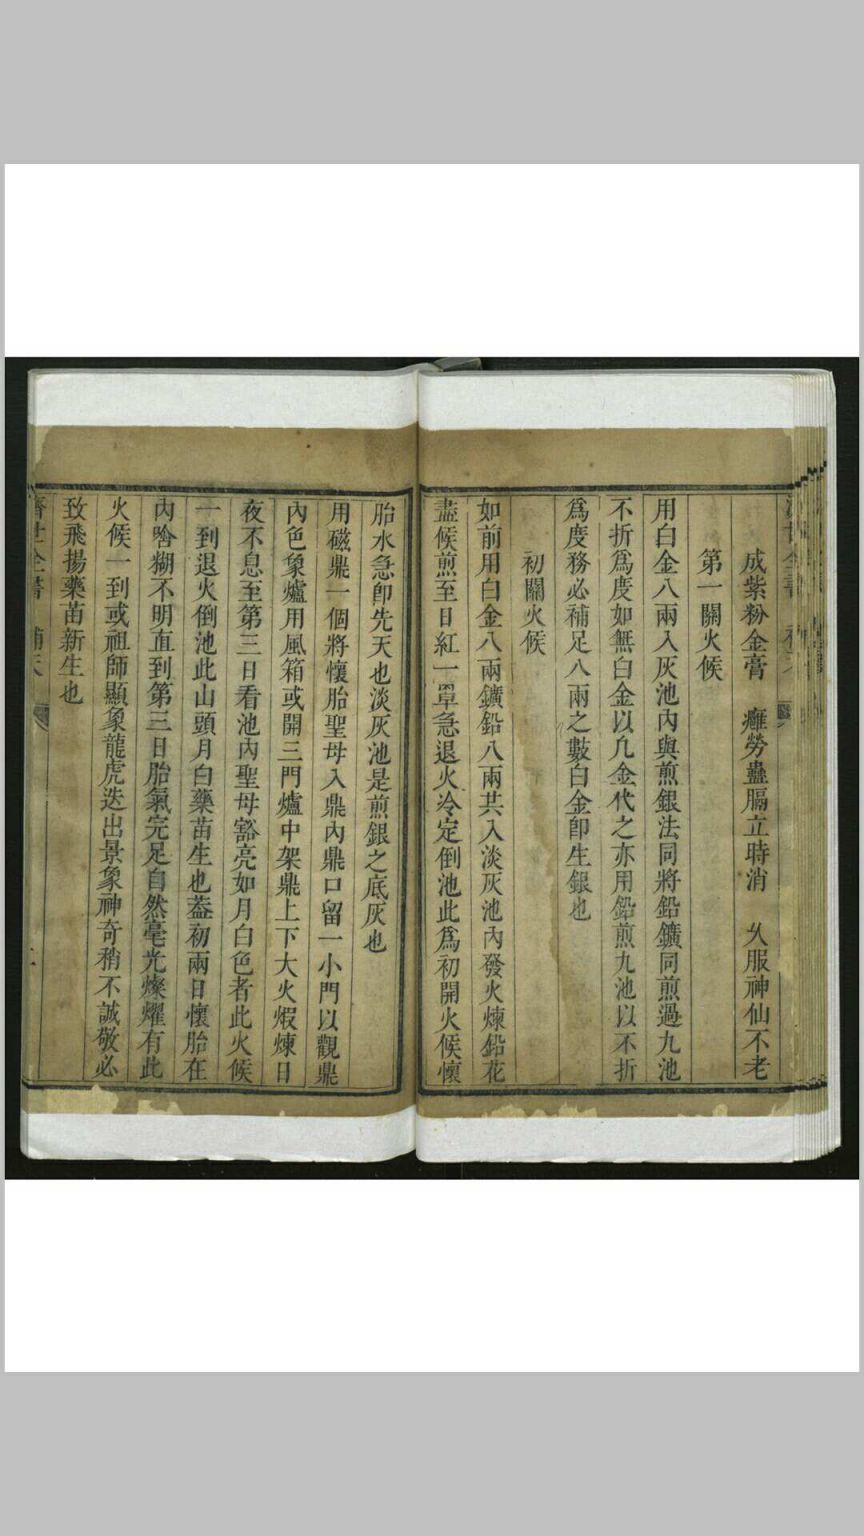 成紫粉金膏　癰勞蠱膈立時消　久服神仙不老
第一關火候
用白金八兩入灰池內與煎銀法同將鉛鑛同煎過九池
不折爲度如無白金以凡金代之亦用鉛煎九池以不折
爲度務必補足八兩之數白金卽生銀也
初關火候
如前用白金八兩鑛鉛八兩共入淡灰池內發火煉鉛花
盡候煎至日紅一罩急退火冷定倒池此爲初開火候懷
胎水急卽先天也淡灰池是煎銀之底灰也
用磁鼎一個將懷胎聖母入鼎內鼎口留一小門以觀鼎
內色象爐用風箱或開三門爐中架鼎上下大火煅煉日
夜不息至第三日看池內聖母豁亮如月白色者此火候
一到退火倒池此山頭月白藥苗生也蓋初兩日懷胎在
內唅糊不明直到第三日胎氣完足自然毫光燦耀有此
火候一到或祖師顯象龍虎迭出景象神奇稍不誠敬必
致飛揚藥苗新生也
濟世全書